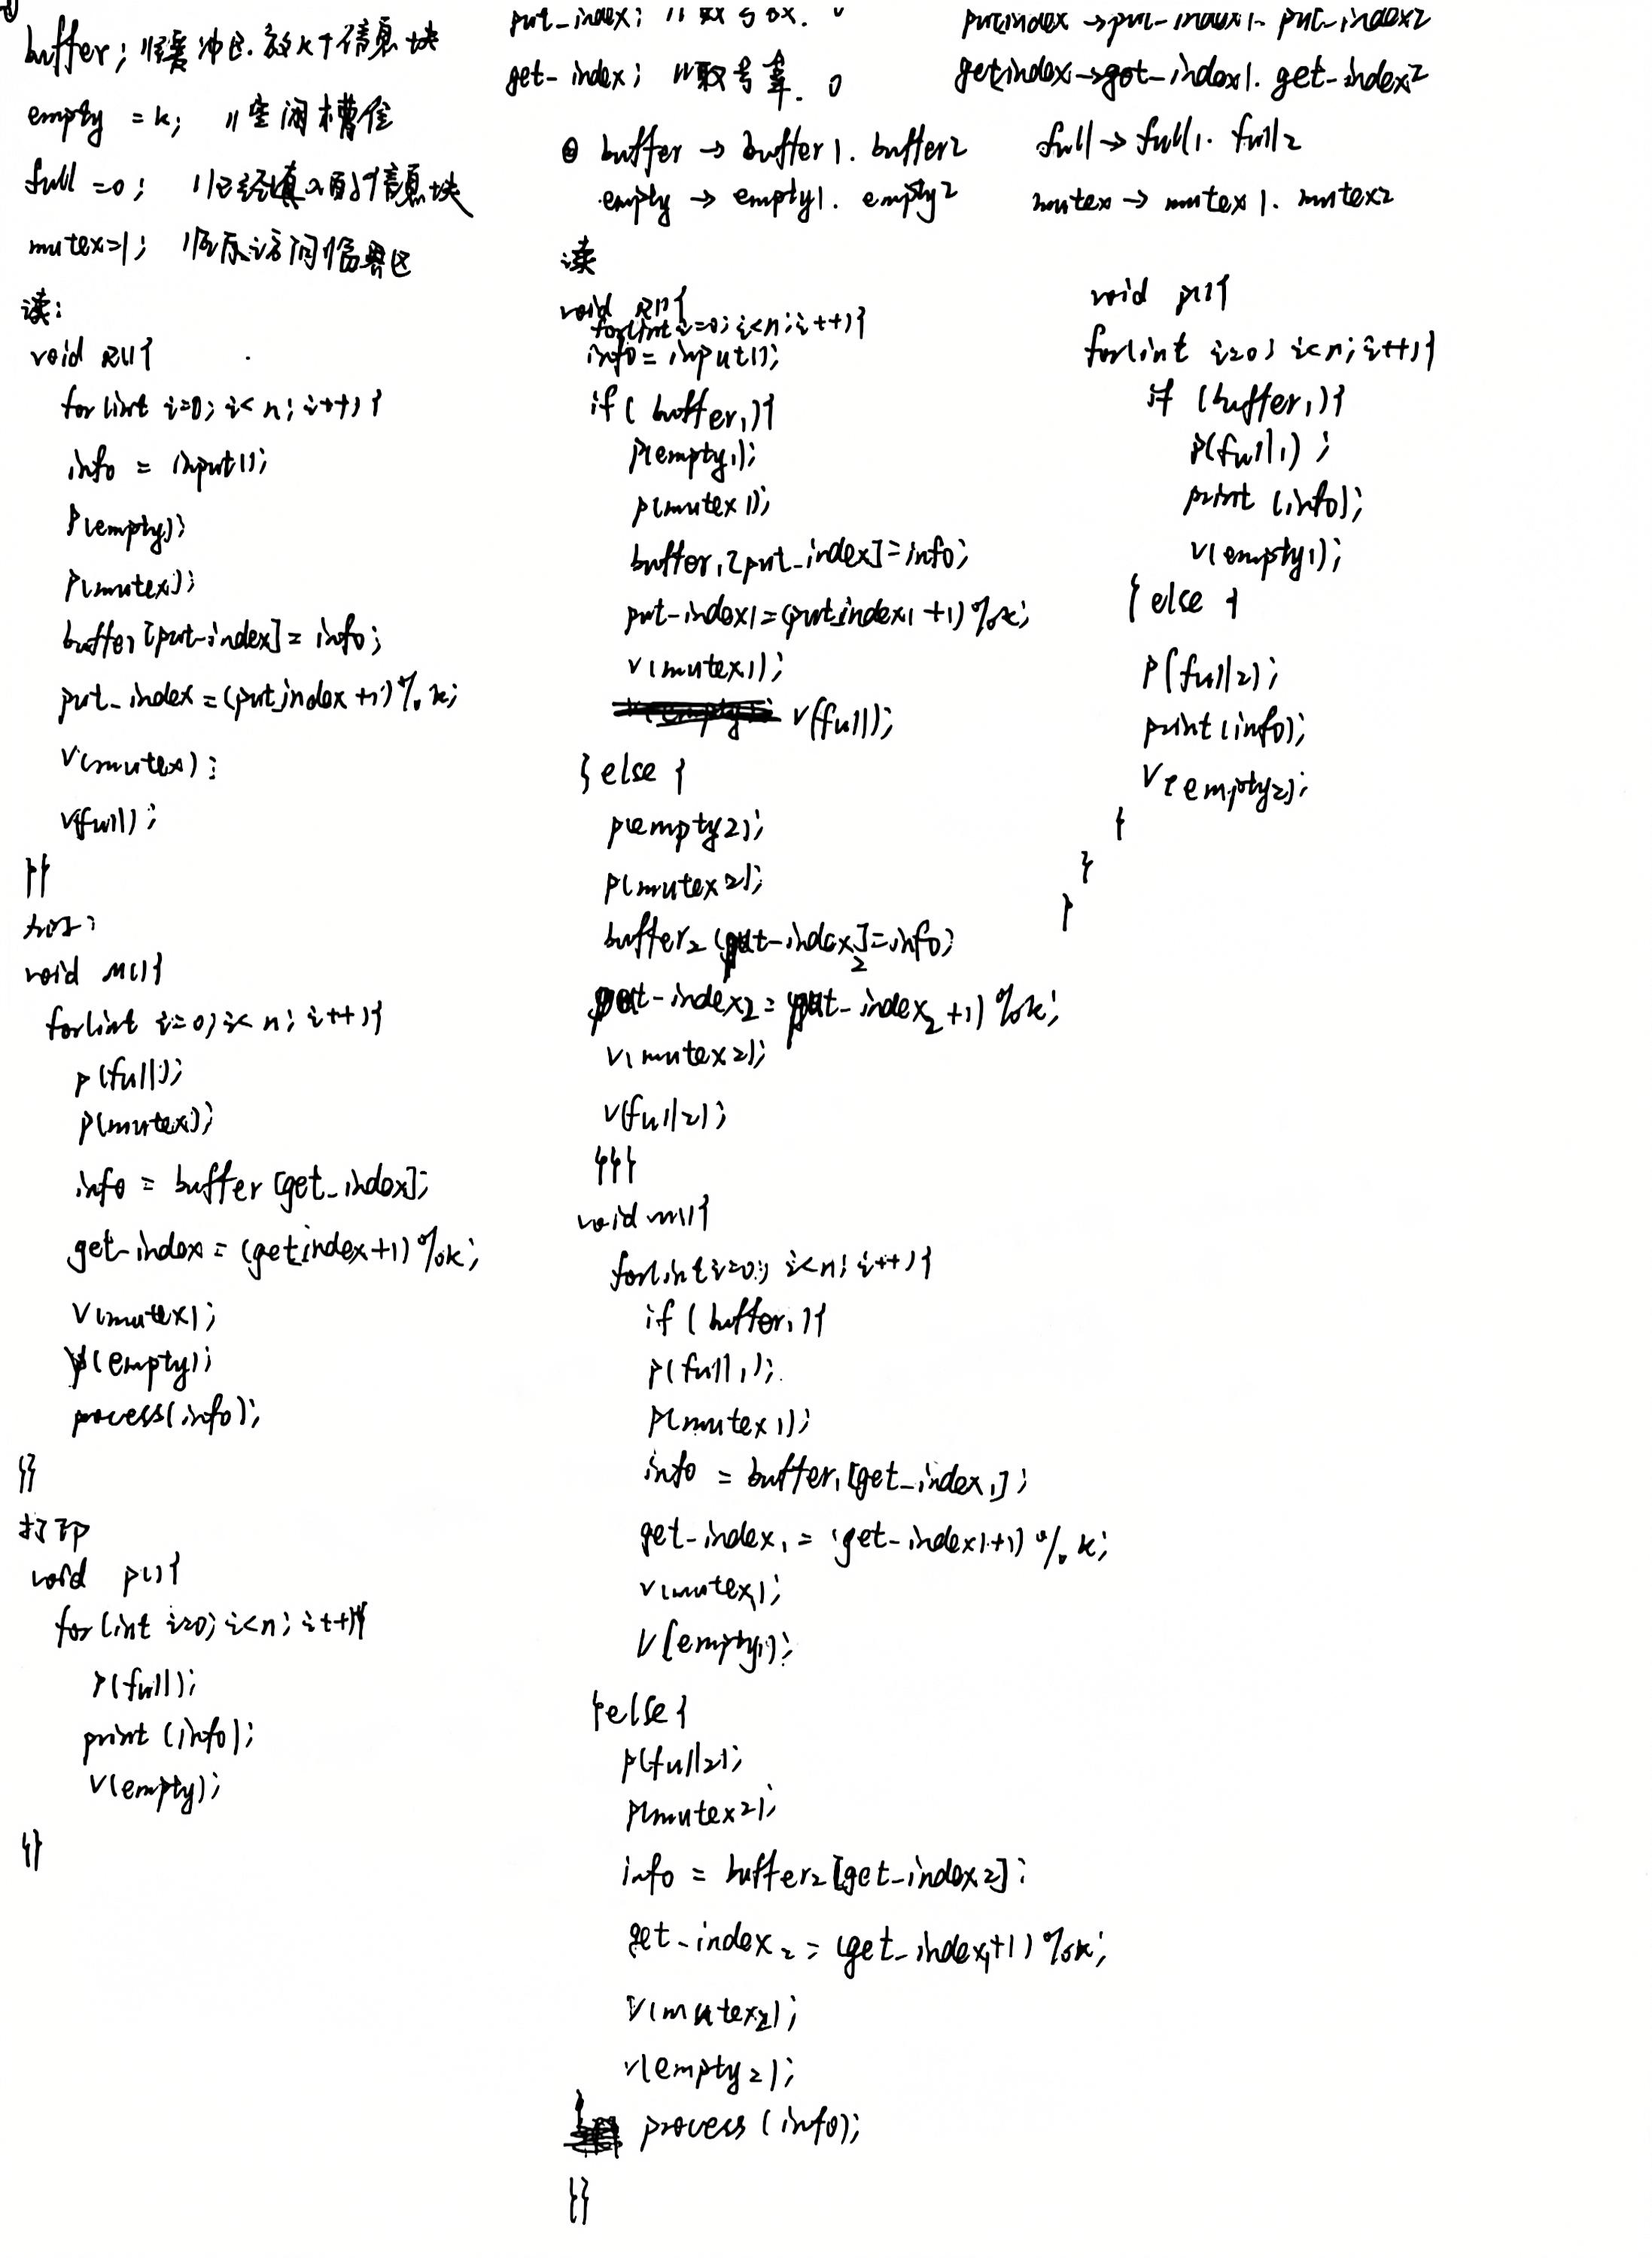 buffer; //缓冲区.放k个信息块
empty = k; //空闲槽位
full =0; //已经填入的信息块
mutex=1; //访问临界区
读:
void R(){
for(int i=0; i<n; i++){
info = input();
P(empty);
P(mutex);
buffer[put-index] = info;
put_index = (put_index +1) % k;
V(mutex);
V(full);
}}
void M(){
for(int i=0; i<n; i++){
P(full);
P(mutex);
info = buffer[get_index];
get-index = (get_index+1) %k;
V(mutex);
V(empty);
process(info);
}}
打印
void P(){
for(int i=0; i<n; i++){
P(full);
print (info);
V(empty);
}}
put_index; //
get-index; //取号 0
buffer → buffer1. buffer2
empty → empty1. empty2
读
void R(){
for(int i=0; i<n; i++){
info = input();
if( buffer1){
P(empty1);
P(mutex1);
buffer1[put_index]=info;
put-index1=(put_index1+1)%k;
V(mutex1);
V(full);
}else{
P(empty2);
P(mutex2);
buffer2(put-index2]=info)
put-index2=(put-index2+1)%k;
V(mutex2);
V(full2);
}}}
void m(){
for(int i=0; i<n; i++){
if ( buffer1){
P(full1);
P(mutex1);
info = buffer1[get_index1];
get-index1 = (get-index1+1) % k;
V(mutex1);
V(empty1);
}else{
P(full2);
P(mutex2);
info = buffer2[get-index2];
get-index2=(get_index1+1)%k;
V(mutex2);
V(empty2);
process (info);
}}
putindex →put-index1. put_index2
getindex→get-index1. get-index2
full → full1. full2
mutex → mutex1. mutex2
void P(){
for(int i=0; i<n; i++){
if (buffer1){
P(full1);
print (info);
V(empty1);
}else{
P(full2);
print(info);
V(empty2);
}
}
}